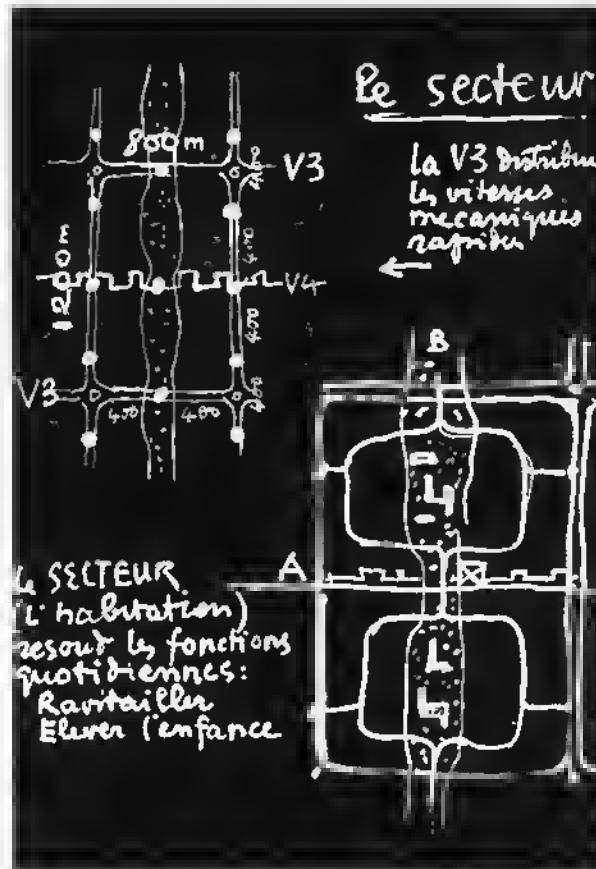 Le secteur
la V3 distribu
les vitesses
mecaniques
rapides
800 m
V3
400
1200 m
400
V4
400
V3
400
400
400
B
A
Le SECTEUR
(L'habitation)
resout les fonctions
quotidiennes:
Ravitailler
Elever l'enfance